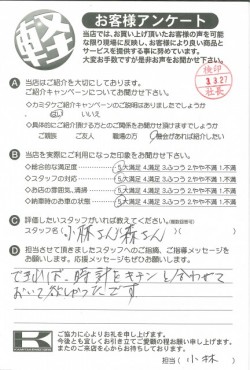 軽
お客様アンケート
当店では、お買い上げ頂いたお客様の声を可能
な限り現場に反映し、お客様により良い商品と
サービスを提供する事に努めています。
大変お手数ですが是非お声をお聞かせ下さい。
検印
3.3.27
社長
A 当店はご紹介を大切にしております。
ご紹介キャンペーンについてお聞かせ下さい。
◇カミタケご紹介キャンペーンのご説明はありましたでしょうか
はい いいえ
◇具体的にご紹介頂ける方とのご関係をお聞かせ頂けますでしょうか
ご親族 ご友人 職場の方 機会があれば紹介したい
B 当店を実際にご利用になった印象をお聞かせ下さい。
◇総合的な満足度 5.大満足 4.満足 3.ふつう 2.やや不満 1.不満
◇スタッフの対応 5.大満足 4.満足 3.ふつう 2.やや不満 1.不満
◇お店の雰囲気、清掃 5.大満足 4.満足 3.ふつう 2.やや不満 1.不満
◇納車時のお車の状態 5.大満足 4.満足 3.ふつう 2.やや不満 1.不満
C 評価したいスタッフがいれば教えてください。(複数回答可)
スタッフ名( 小林さん 森さん )
D 担当させて頂きましたスタッフへのご指摘、ご指導メッセージを
お願いします。応援メッセージもぜひお願いします。
できれば、時計をキチンと合わせて
おいて欲しかったです
K
ご協力に心よりお礼を申し上げます。
今後とも宜しくお引き立てご愛顧の程お願い申し上げます。
またのご来店を心からお待ちしております。
担当( 小林 )